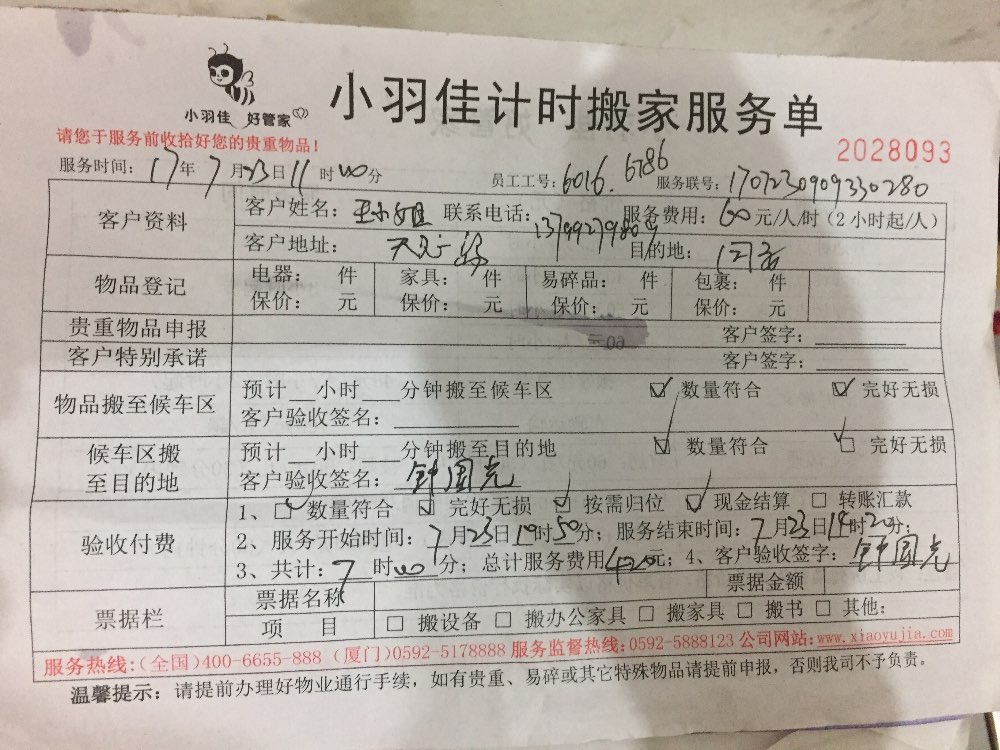 小羽佳 好管家
小羽佳计时搬家服务单
请您于服务前收拾好您的贵重物品!
2028093
服务时间: 17年7月23日11时00分 员工工号: 6016. 6786 服务联号: 1707230909330280
客户资料 客户姓名: 王小姐 联系电话: 服务费用: 60元/人/时 (2小时起/人)
客户地址: 目的地:
物品登记 电器: 件 家具: 件 易碎品: 件 包裹: 件
保价: 元 保价: 元 保价: 元 保价: 元
贵重物品申报 客户签字:
客户特别承诺 客户签字:
物品搬至候车区 预计__小时___分钟搬至候车区 ☑ 数量符合 ☑ 完好无损
客户验收签名:
候车区搬至目的地 预计__小时___分钟搬至目的地 ☑ 数量符合 ☑ 完好无损
客户验收签名: 钟国光
验收付费 1、☑ 数量符合 ☑ 完好无损 ☑ 按需归位 ☑ 现金结算 □ 转账汇款
2、服务开始时间: 7月23日 时50分; 服务结束时间: 7月23日 时 分;
3、共计: 7时00分; 总计服务费用420元; 4、客户验收签字: 钟国光
票据栏 票据名称 票据金额
项 目 □ 搬设备 □ 搬办公家具 □ 搬家具 □ 搬书 □ 其他:
服务热线:(全国)400-6655-888 (厦门)0592-5178888 服务监督热线:0592-5888123 公司网站:www.xiaoyujia.com
温馨提示: 请提前办理好物业通行手续，如有贵重、易碎或其它特殊物品请提前申报，否则我司不予负责。